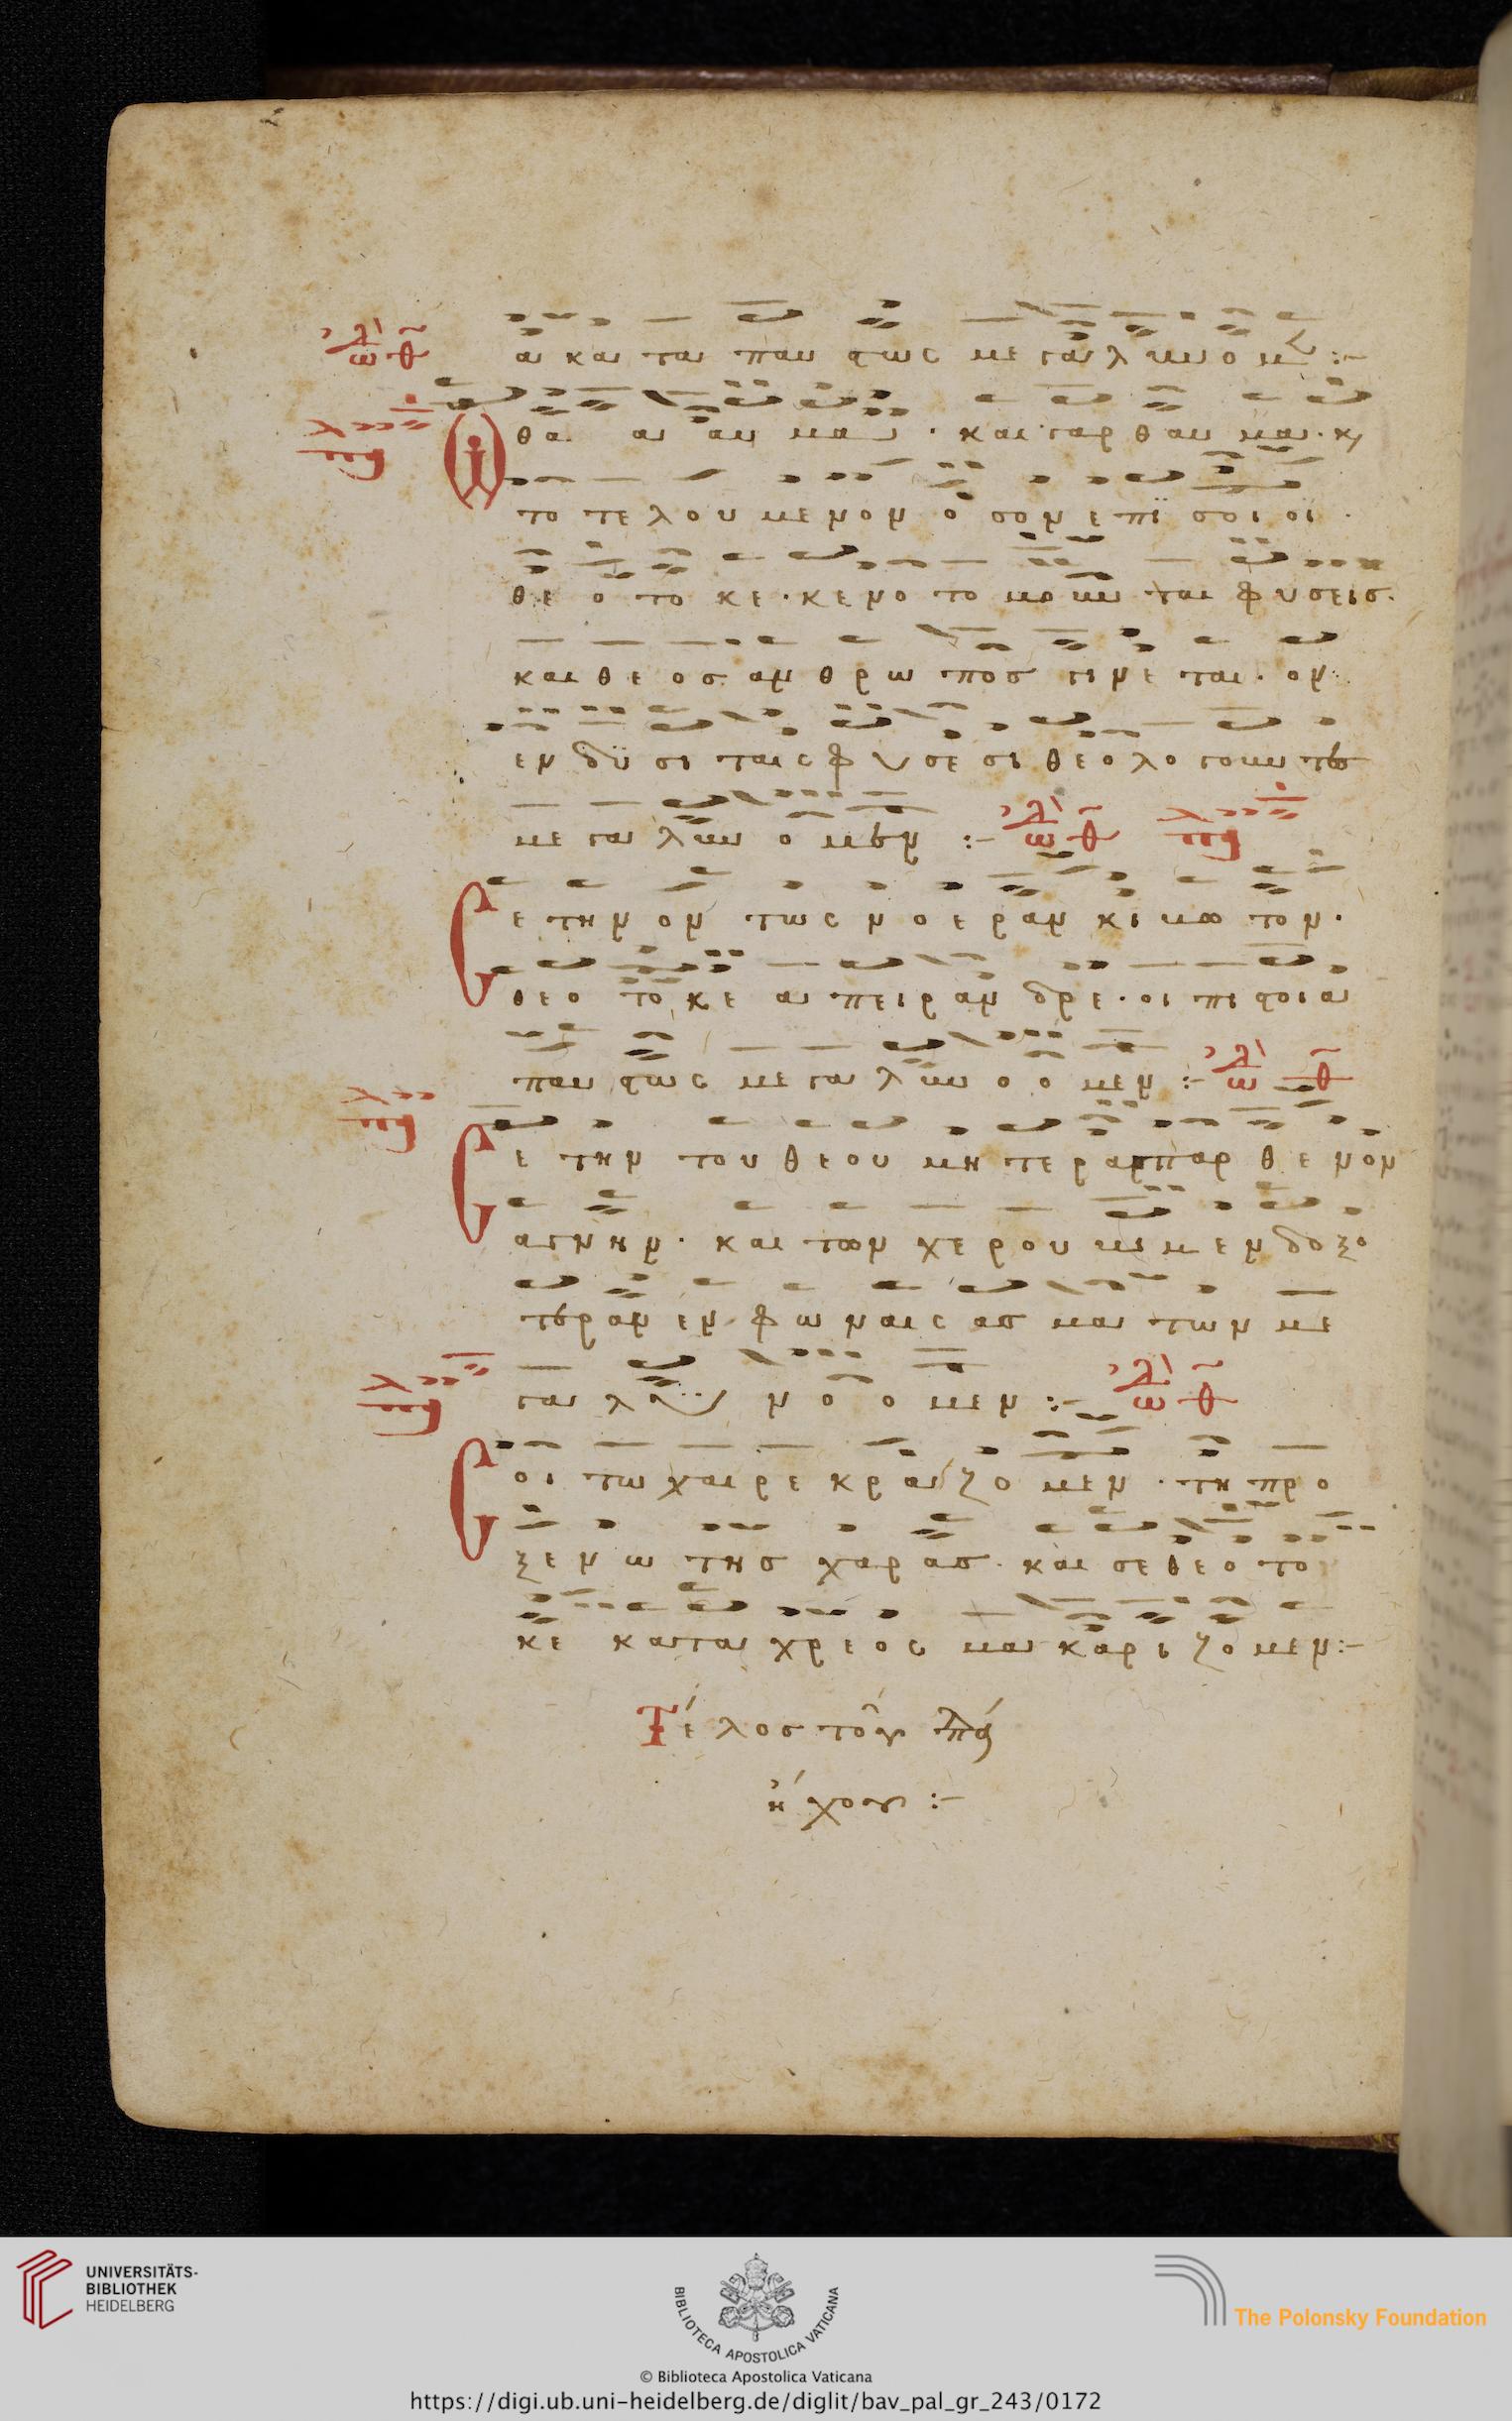 αι και ται παν αως με γα λυν ο μεν :-
Ω θα αι αυ μα των · και παρ θαυ μα · κ,
το τε λου με νον ο σον ε πϊ σοι οι ·
θε ο το κε · κε νο το μουν ται φυ σεις ·
και θε ος αν θρω πος γι νε ται · ον
εν δϋ σι ταις φυ σε σι θε ο λο γουν τες
με γα λυν ο μεν :-
Σε την ον τως νο ε ραν κι βω τον ·
θε ο το κε α πει ραν δρε · οι πι στοι α
παυ στως με γα λυν ο ο μεν :-
Σε την του θε ου μη τε ρα παρ θε νον
α γνην · και των χε ρου βιμ εν δο ξο
τε ραν εν φω ναις ασ μα των με
γα λυ ν ο ο μεν :-
Σοι τω χαι ρε κρα ζο μεν · τη προ
ξε νω της χα ρας · και σε θε ο το
κε κα τα χρε ος μα κα ρι ζο μεν :-
Τέλος τοῦ πλα
ἤχου :-
UNIVERSITÄTS-
BIBLIOTHEK
HEIDELBERG
BIBLIOTECA APOSTOLICA VATICANA
The Polonsky Foundation
© Biblioteca Apostolica Vaticana
https://digi.ub.uni-heidelberg.de/diglit/bav_pal_gr_243/0172